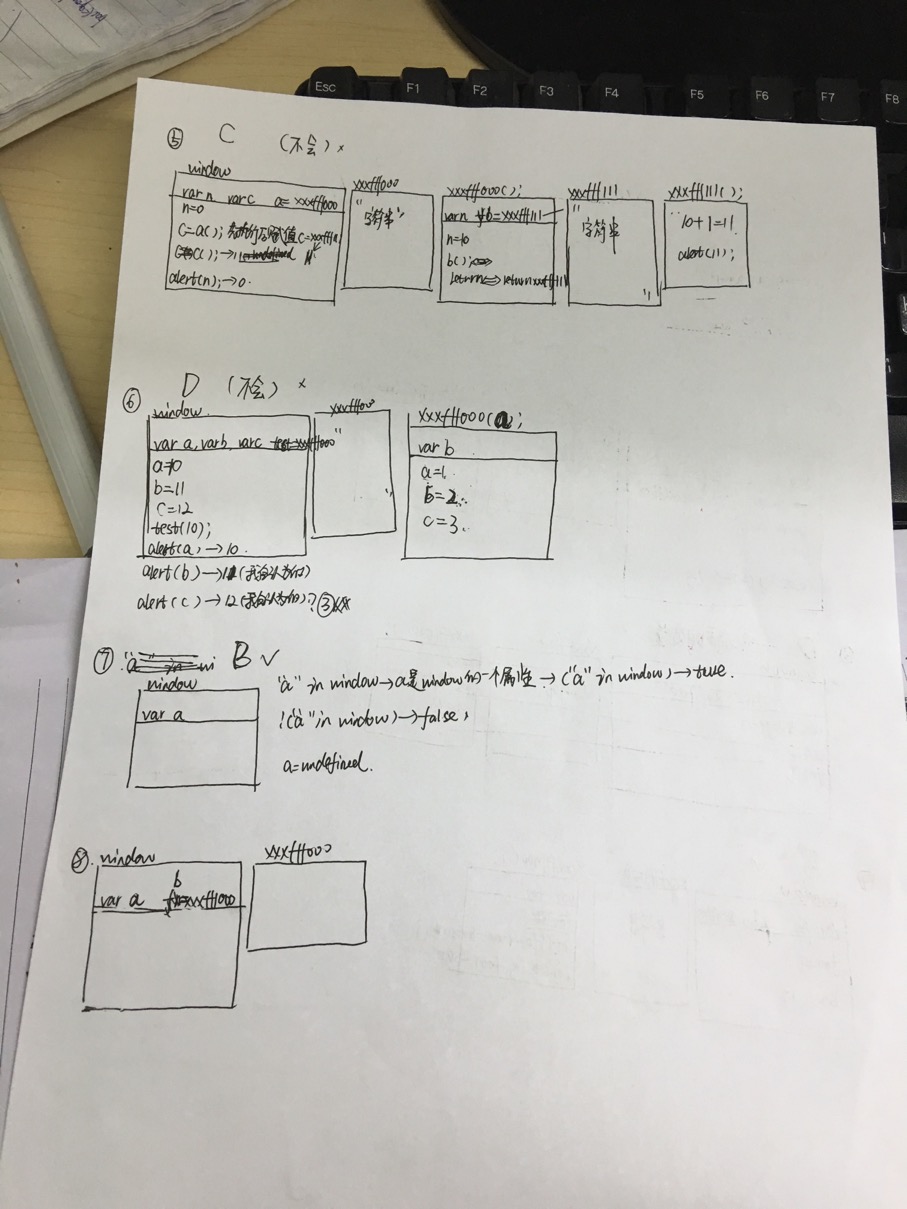 Esc F1 F2 F3 F4 F5 F6 F7 F8
⑤ C (不会) ×
window
var n var c a= xxxfff000
n=0
c=a();
c();→11
alert(n);→0
xxxfff000
"字符串"
xxxfff000();
var n b=xxxfff111
n=10
b();
return
xxxfff111
"
字符串
"
xxxfff111();
10+1=11
alert(11);
⑥ D (不会) ×
window
var a, var b, var c test=xxxfff000
a=10
b=11
c=12
test(10);
alert(a)→10
alert(b)→11
alert(c)→12 ? ③
xxxfff000
"
"
xxxfff000(a);
var b
a=1
b=2
c=3
⑦ B ✓
window
var a
"a" in window→a是window的一个属性→("a" in window)→true.
!("a" in window)→false,
a=undefined.
⑧. window
b
var a xxxfff000
xxxfff000